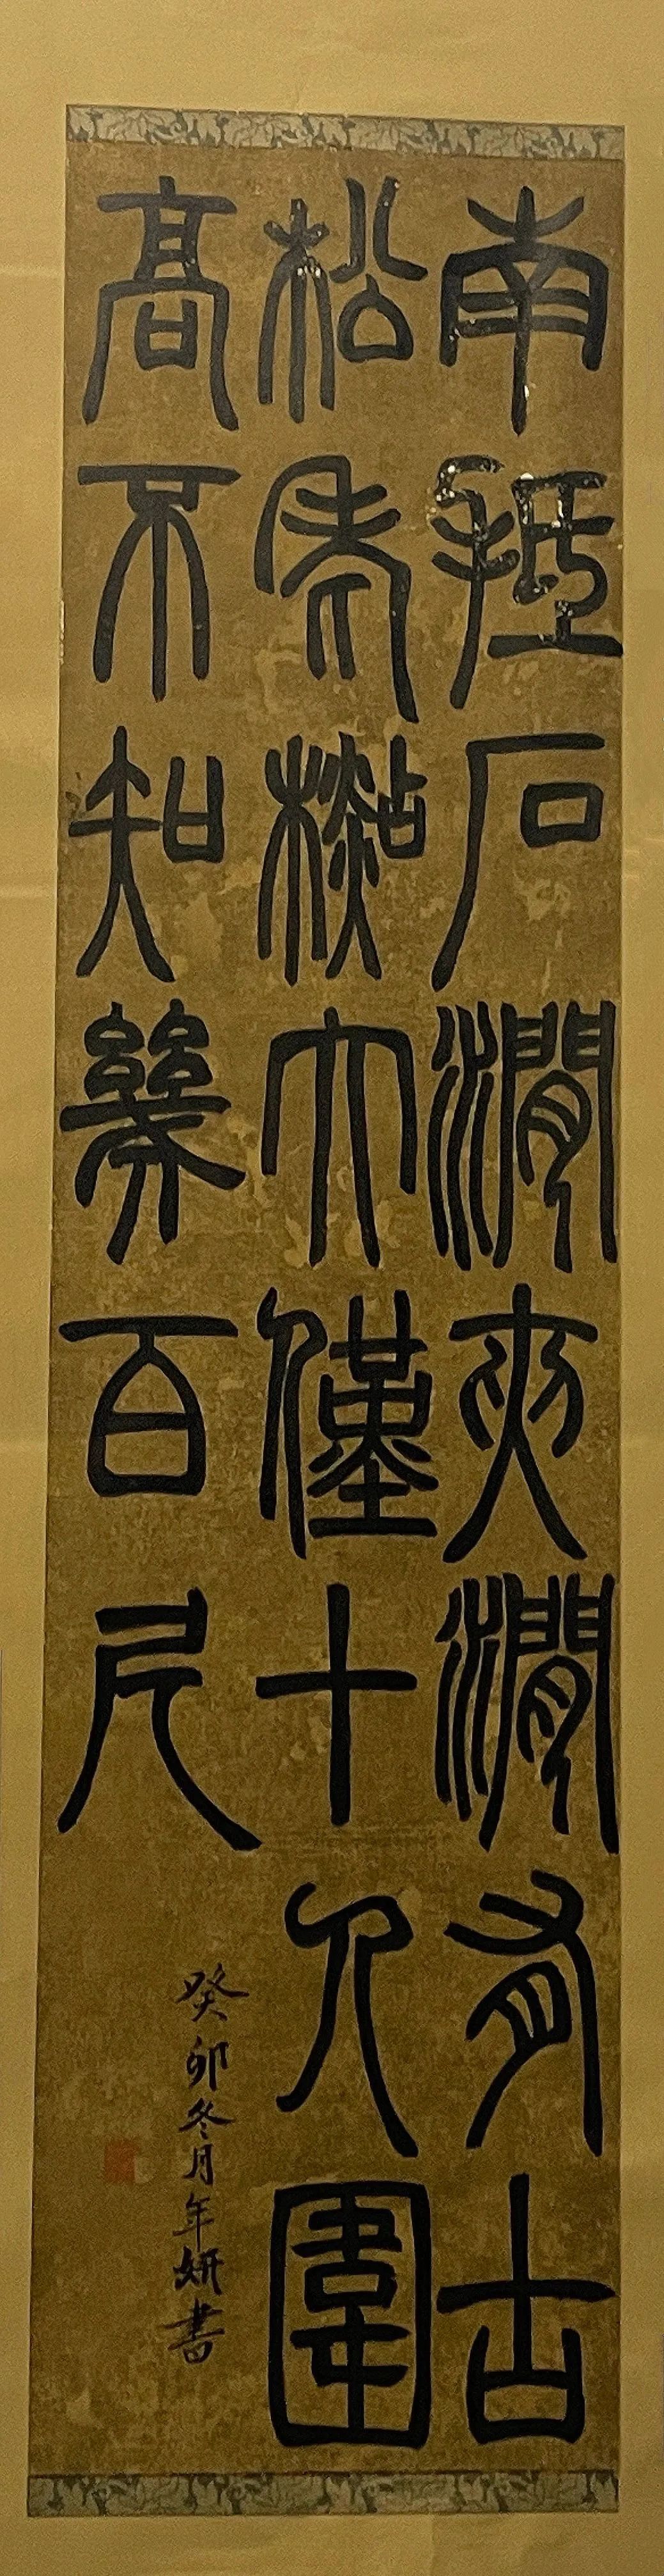 南抵石澗夾澗有古
松老㯳大僅十人圍
高不知幾百尺
癸卯冬月年妍書